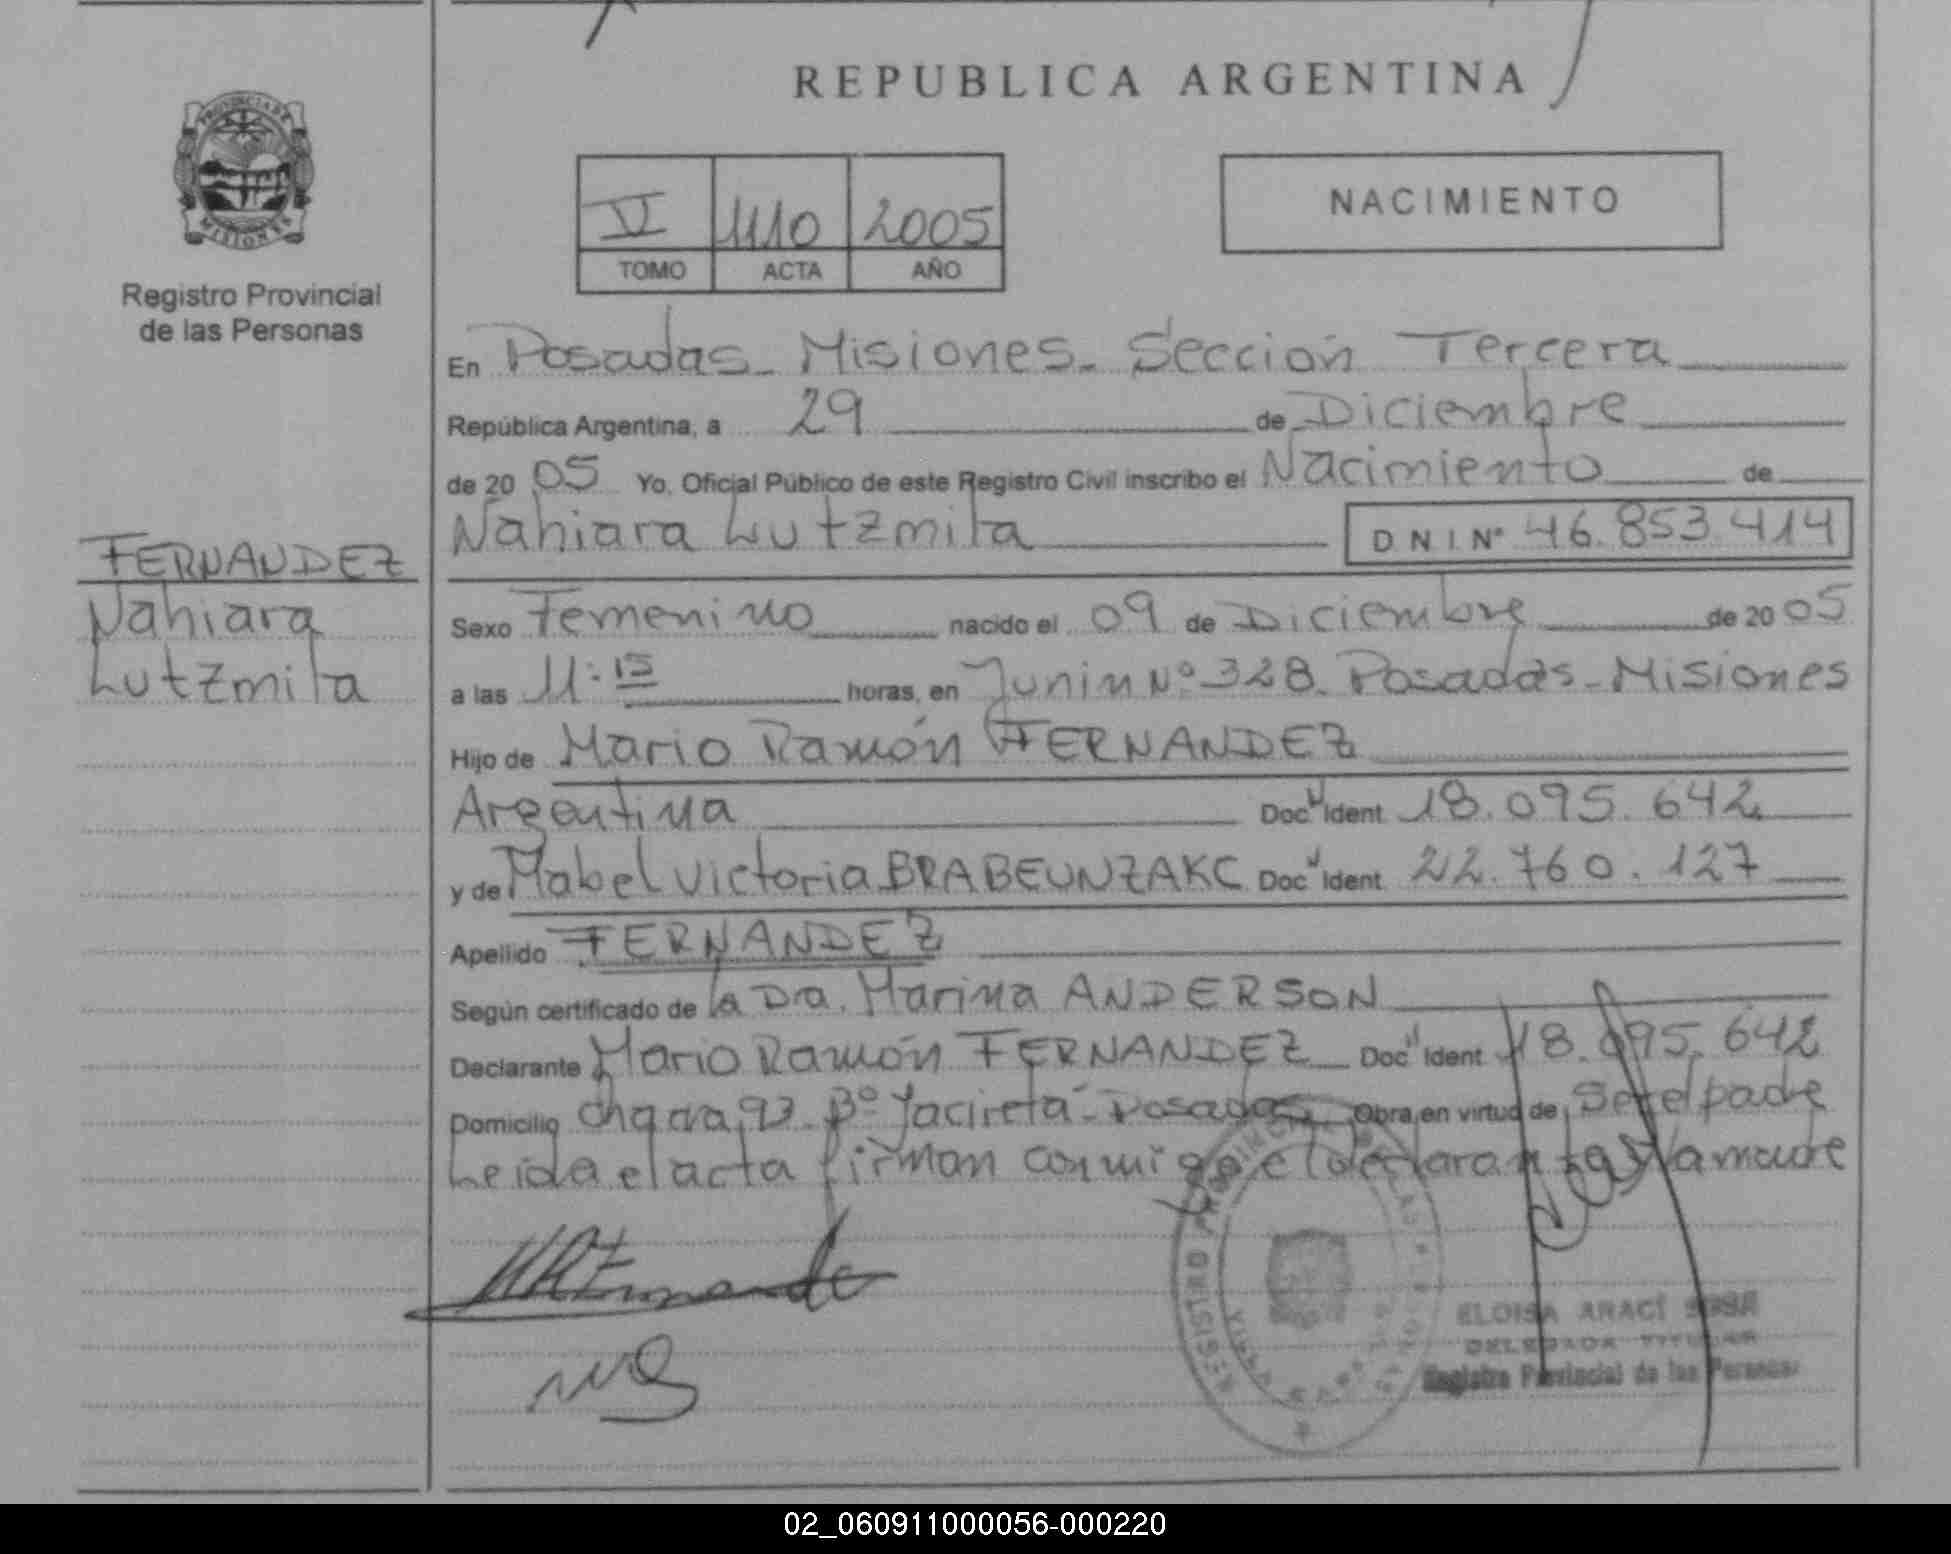 REPUBLICA ARGENTINA
PROVINCIA DE
MISIONES
Registro Provincial
de las Personas
V 1110 2005
TOMO ACTA AÑO
NACIMIENTO
En Posadas - Misiones - Sección Tercera
República Argentina, a 29 de Diciembre
de 20 05 Yo, Oficial Público de este Registro Civil inscribo el Nacimiento de
Nahiara Lutzmila DNI Nº 46.853.414
FERNANDEZ
Nahiara
Lutzmila
Sexo Femenino nacido el 09 de Diciembre de 20 05
a las 11:15 horas, en Junin Nº 328. Posadas - Misiones
Hijo de Mario Ramón FERNANDEZ
Argentina Doc Ident 18.095.642
y de Mabel Victoria Doc Ident 22.760.127
Apellido FERNANDEZ
Según certificado de la Dra. Marina ANDERSON
Declarante Mario Ramón FERNANDEZ Doc Ident 18.095.642
Domicilio Bº Yacireta - Posadas Obra en virtud de Ser el padre
Leida el acta firman conmigo el declarante y la madre
ELOISA ARACÍ SOSA
DELEGADA TITULAR
Registro Provincial de las Personas
02_060911000056-000220